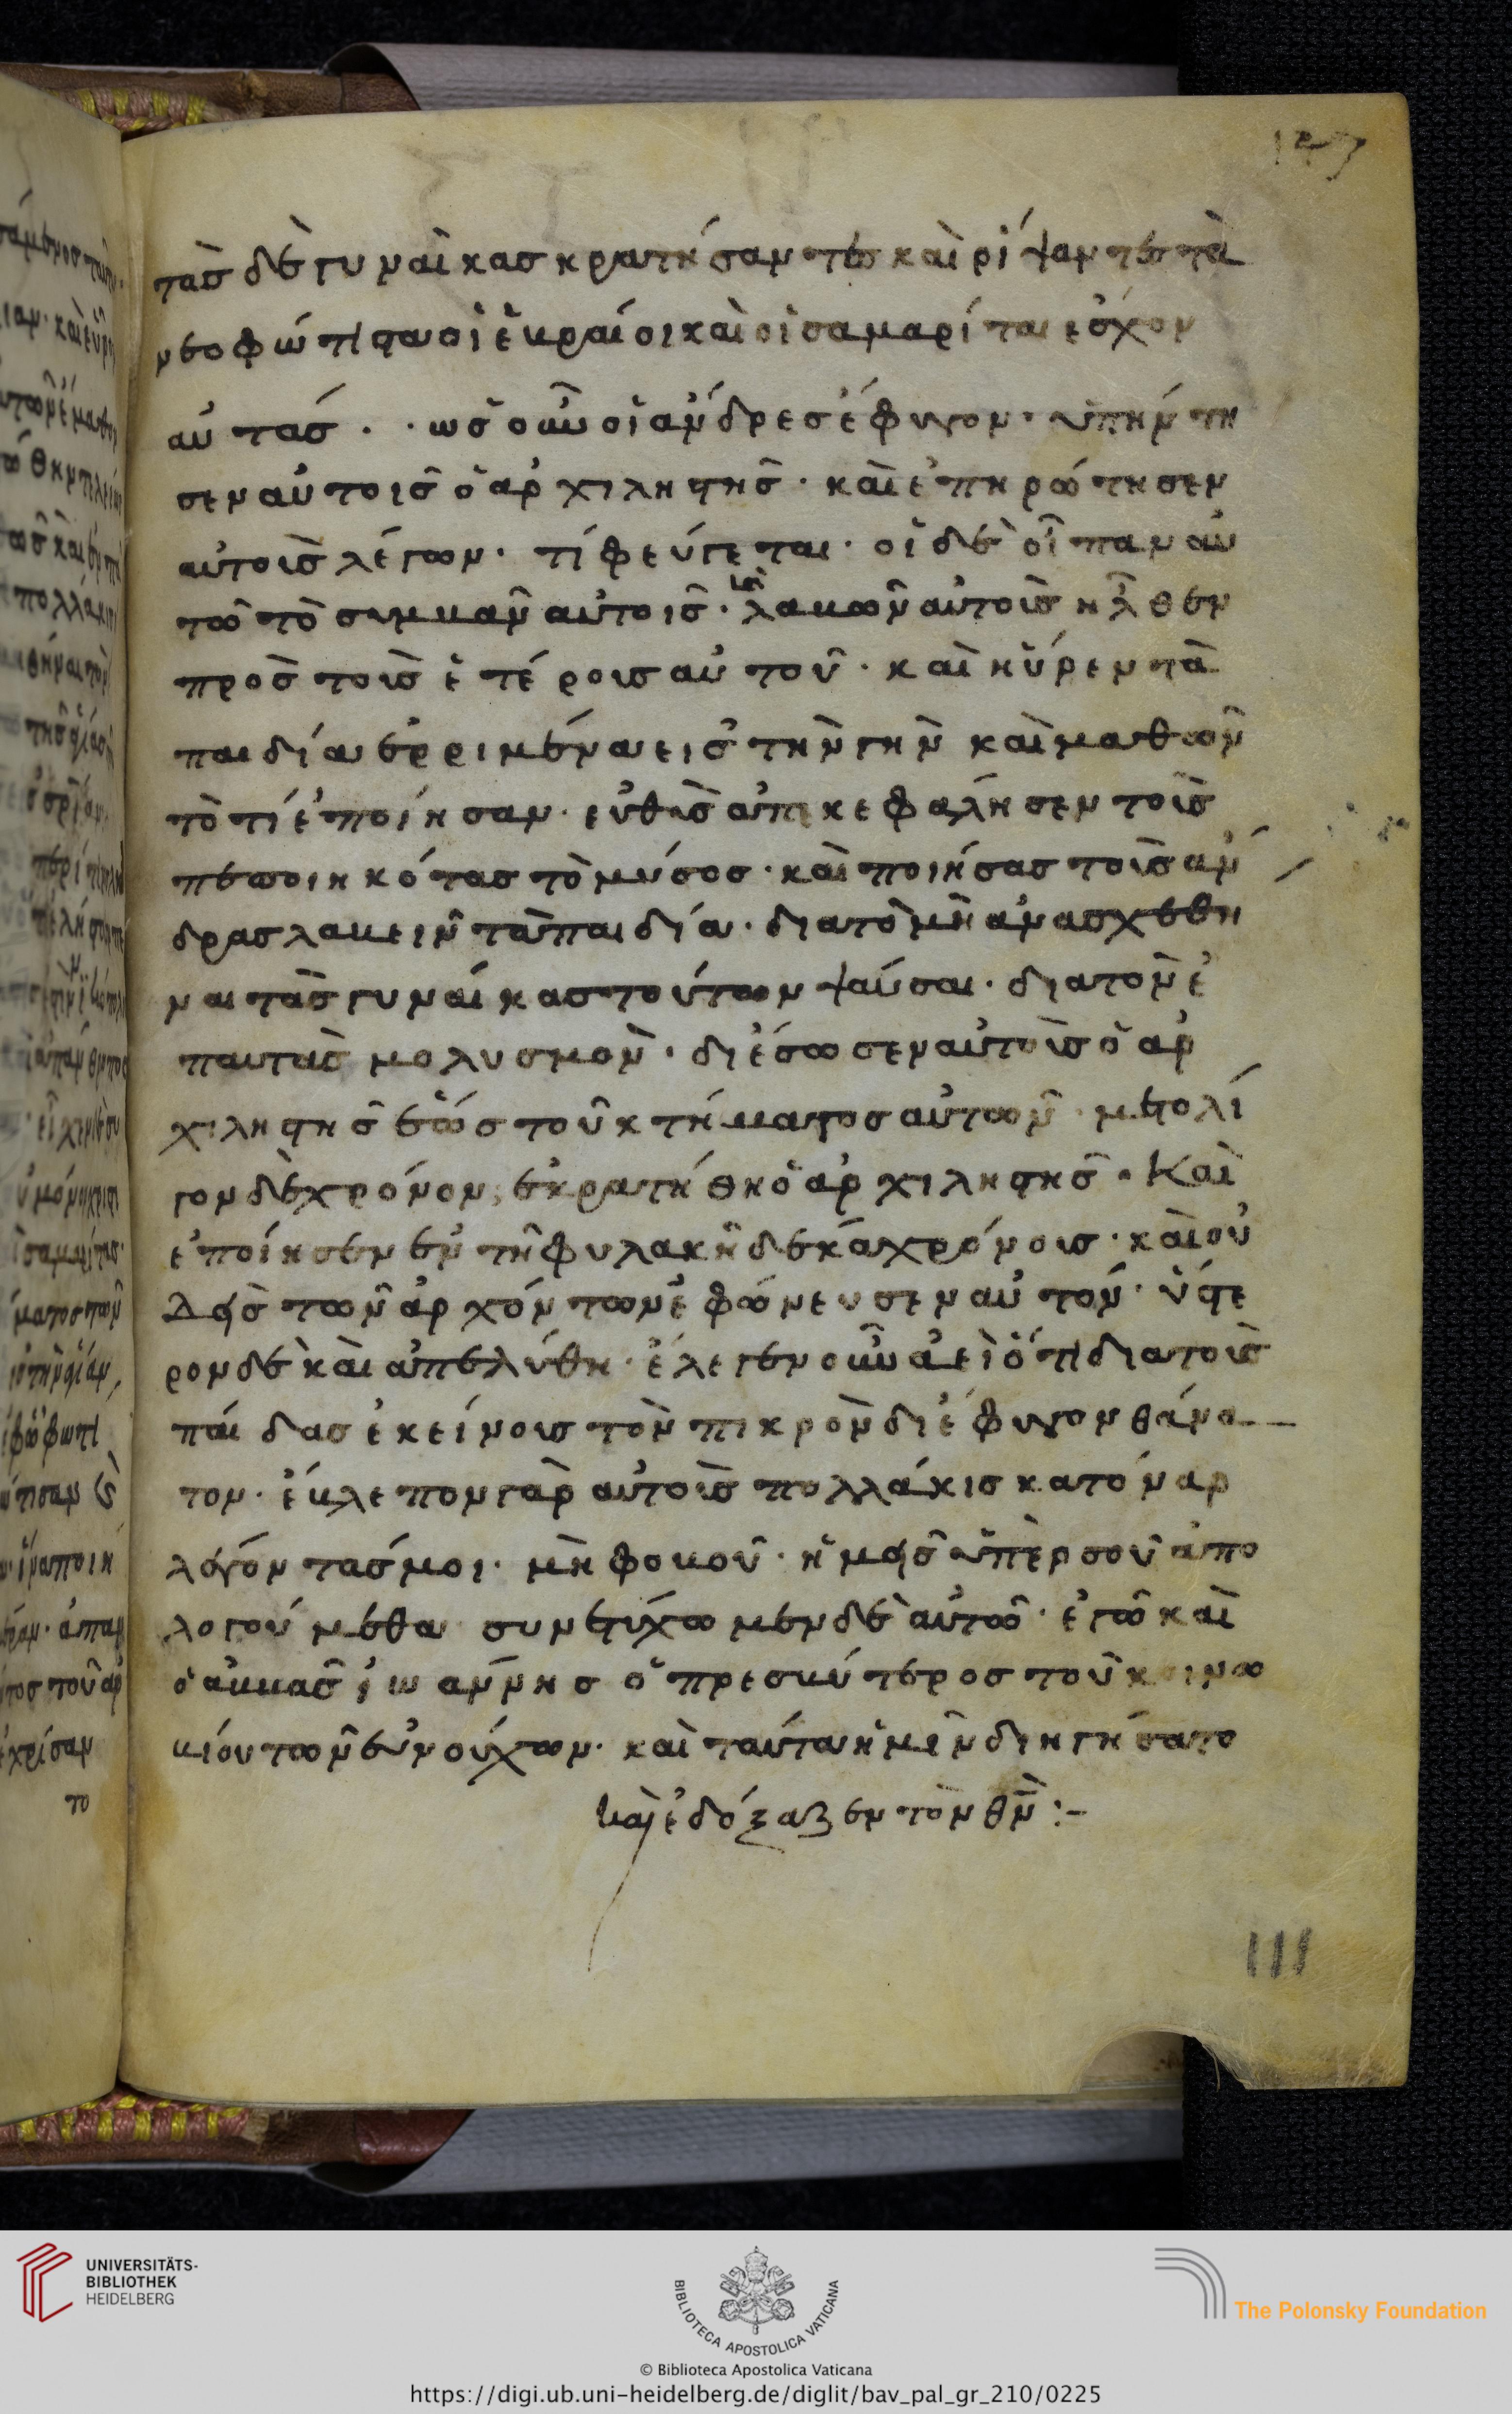 τὰς δὲ γυναῖκας κρατήσαντες καὶ ρίψαντες τὰ
νεοφώτιστα οἱ ἑβραίοι καὶ οἱ σαμαρίται ἔσχον
αὐτάς · · ὡς οὖν οἱ ἄνδρες ἔφυγον · ὑπήντη
σεν αὐτοῖς ὁ ἀρχιληστης · καὶ ἐπηρώτησεν
αὐτοὺς λέγων · τί φεύγεται · οἱ δὲ οἶπαν αὐ
τῶ τὸ συμβὰν αὐτοῖς · καὶ λαβὼν αὐτοὺς ἦλθεν
πρὸς τοὺς ἑτέρους αὐτοῦ · καὶ ηὕρεν τὰ
παιδία ἐρριμένα εἰς τὴν γὴν καὶ μαθὼν
τὸ τί ἐποίησαν · εὐθὺς ἀπεκεφαλησεν τοὺς
πεποιηκότας τὸ μύσος · καὶ ποιήσας τοὺς ἄν
δρας λαβεῖν τὰ παιδία · διατὸ μὴ ἀνασχέθη
ναι τὰς γυναίκας τούτων ψαύσαι · διατον ἐ
παυτὰς μολυσμὸν · διέσωσεν αὐτοὺς ὁ ἀρ
χιληστης ἕως τοῦ κτήματος αὐτῶν · μετολί
γον δὲ χρόνον, ἐκρατήθη ὁ ἀρχιληστης · Καὶ
ἐποίησεν ἐν τῆ φυλακῆ δέκα χρόνους · καὶ οὐ
δεὶς τῶν ἀρχόντων ἐφώνευσεν αὐτόν · ὕστε
ρον δὲ καὶ ἀπελύθη · ἔλεγεν οὖν ἀεὶ ὅτι διατοὺς
παίδας ἐκείνους τὸν πικρὸν διέφυγον θάνα
τον · ἔβλεπον γὰρ αὐτοὺς πολλάκις κατόναρ
λέγόντας μοι · μὴ φοβοῦ · ἡμεῖς ὑπὲρ σοῦ ἀπο
λογούμεθα συνετύχωμεν δὲ αὐτῶ · ἐγὼ καὶ
ὁ ἀββᾶς ἰωάννης ὁ πρεσβύτερος τοῦ κοινω
βίου τῶν εὐνούχων · καὶ ταύτα ἡμῖν διηγήσατο
καὶ ἐδόξαζεν τὸν θν :-
111
UNIVERSITÄTS-
BIBLIOTHEK
HEIDELBERG
BIBLIOTECA APOSTOLICA VATICANA
The Polonsky Foundation
© Biblioteca Apostolica Vaticana
https://digi.ub.uni-heidelberg.de/diglit/bav_pal_gr_210/0225